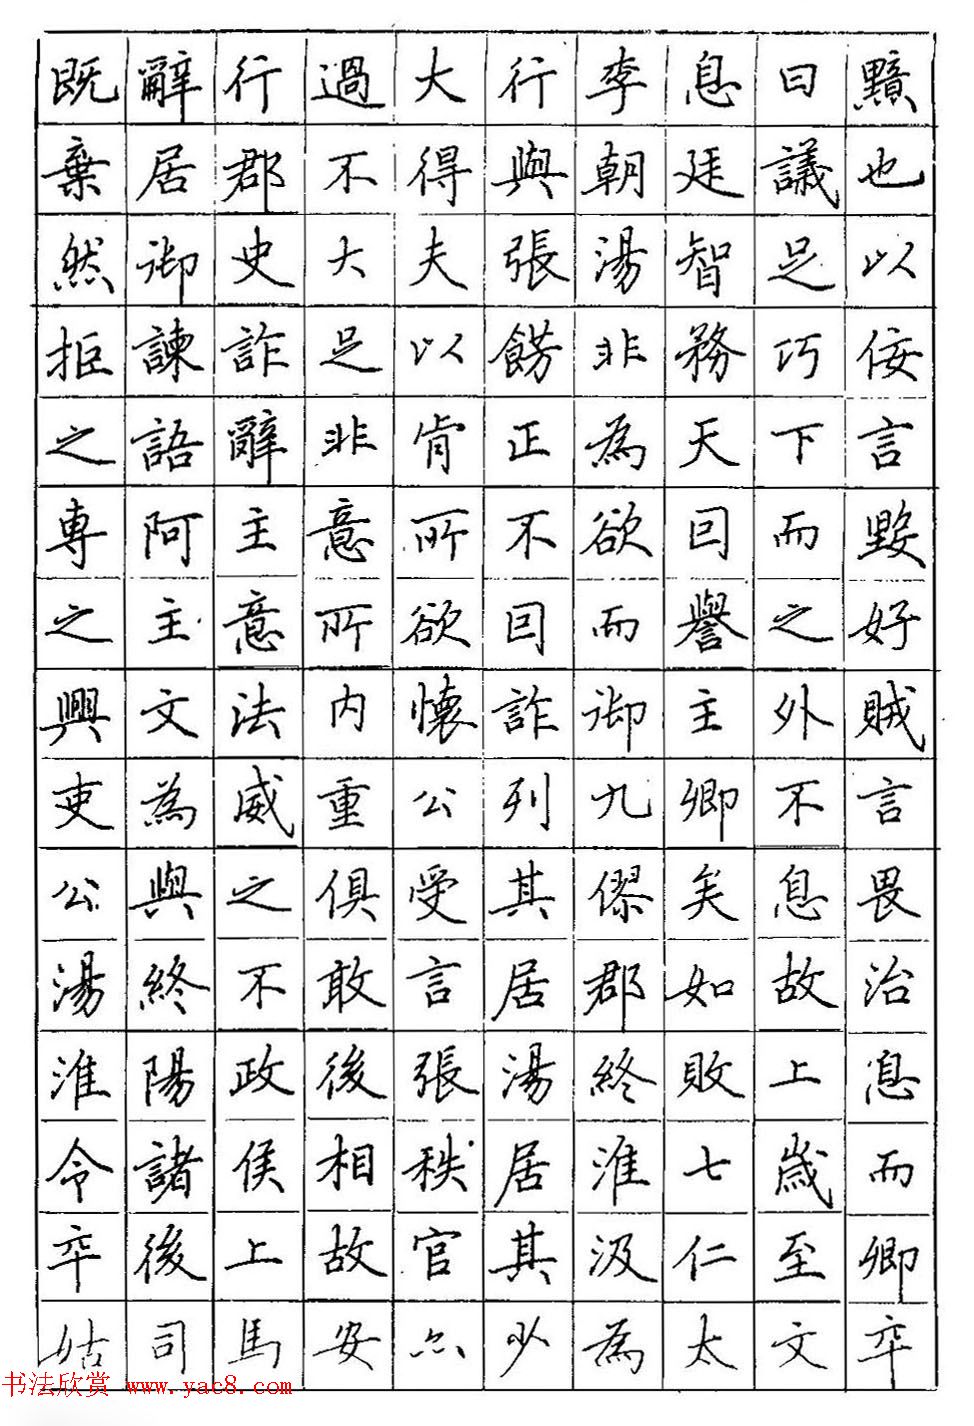 既辭行過大行李息曰黯
棄居郡不得與朝廷議也
然御史大夫張湯智足以
拒諫詐足以餝非務巧佞
之語辭非肯正為天下言
專阿主意所不欲囙而毀
之主意所欲囙而譽之好
興文法內懷詐御主外賊
吏為威重公列九卿不言
公與之俱受其僇矣息畏
湯終不敢言居郡如故治
淮陽政後張湯終敗上息
令諸侯相秩居淮七歲而
卒後上故官其汲仁至卿
姑司馬安亦少為太文卒
书法欣赏 www.yac8.com